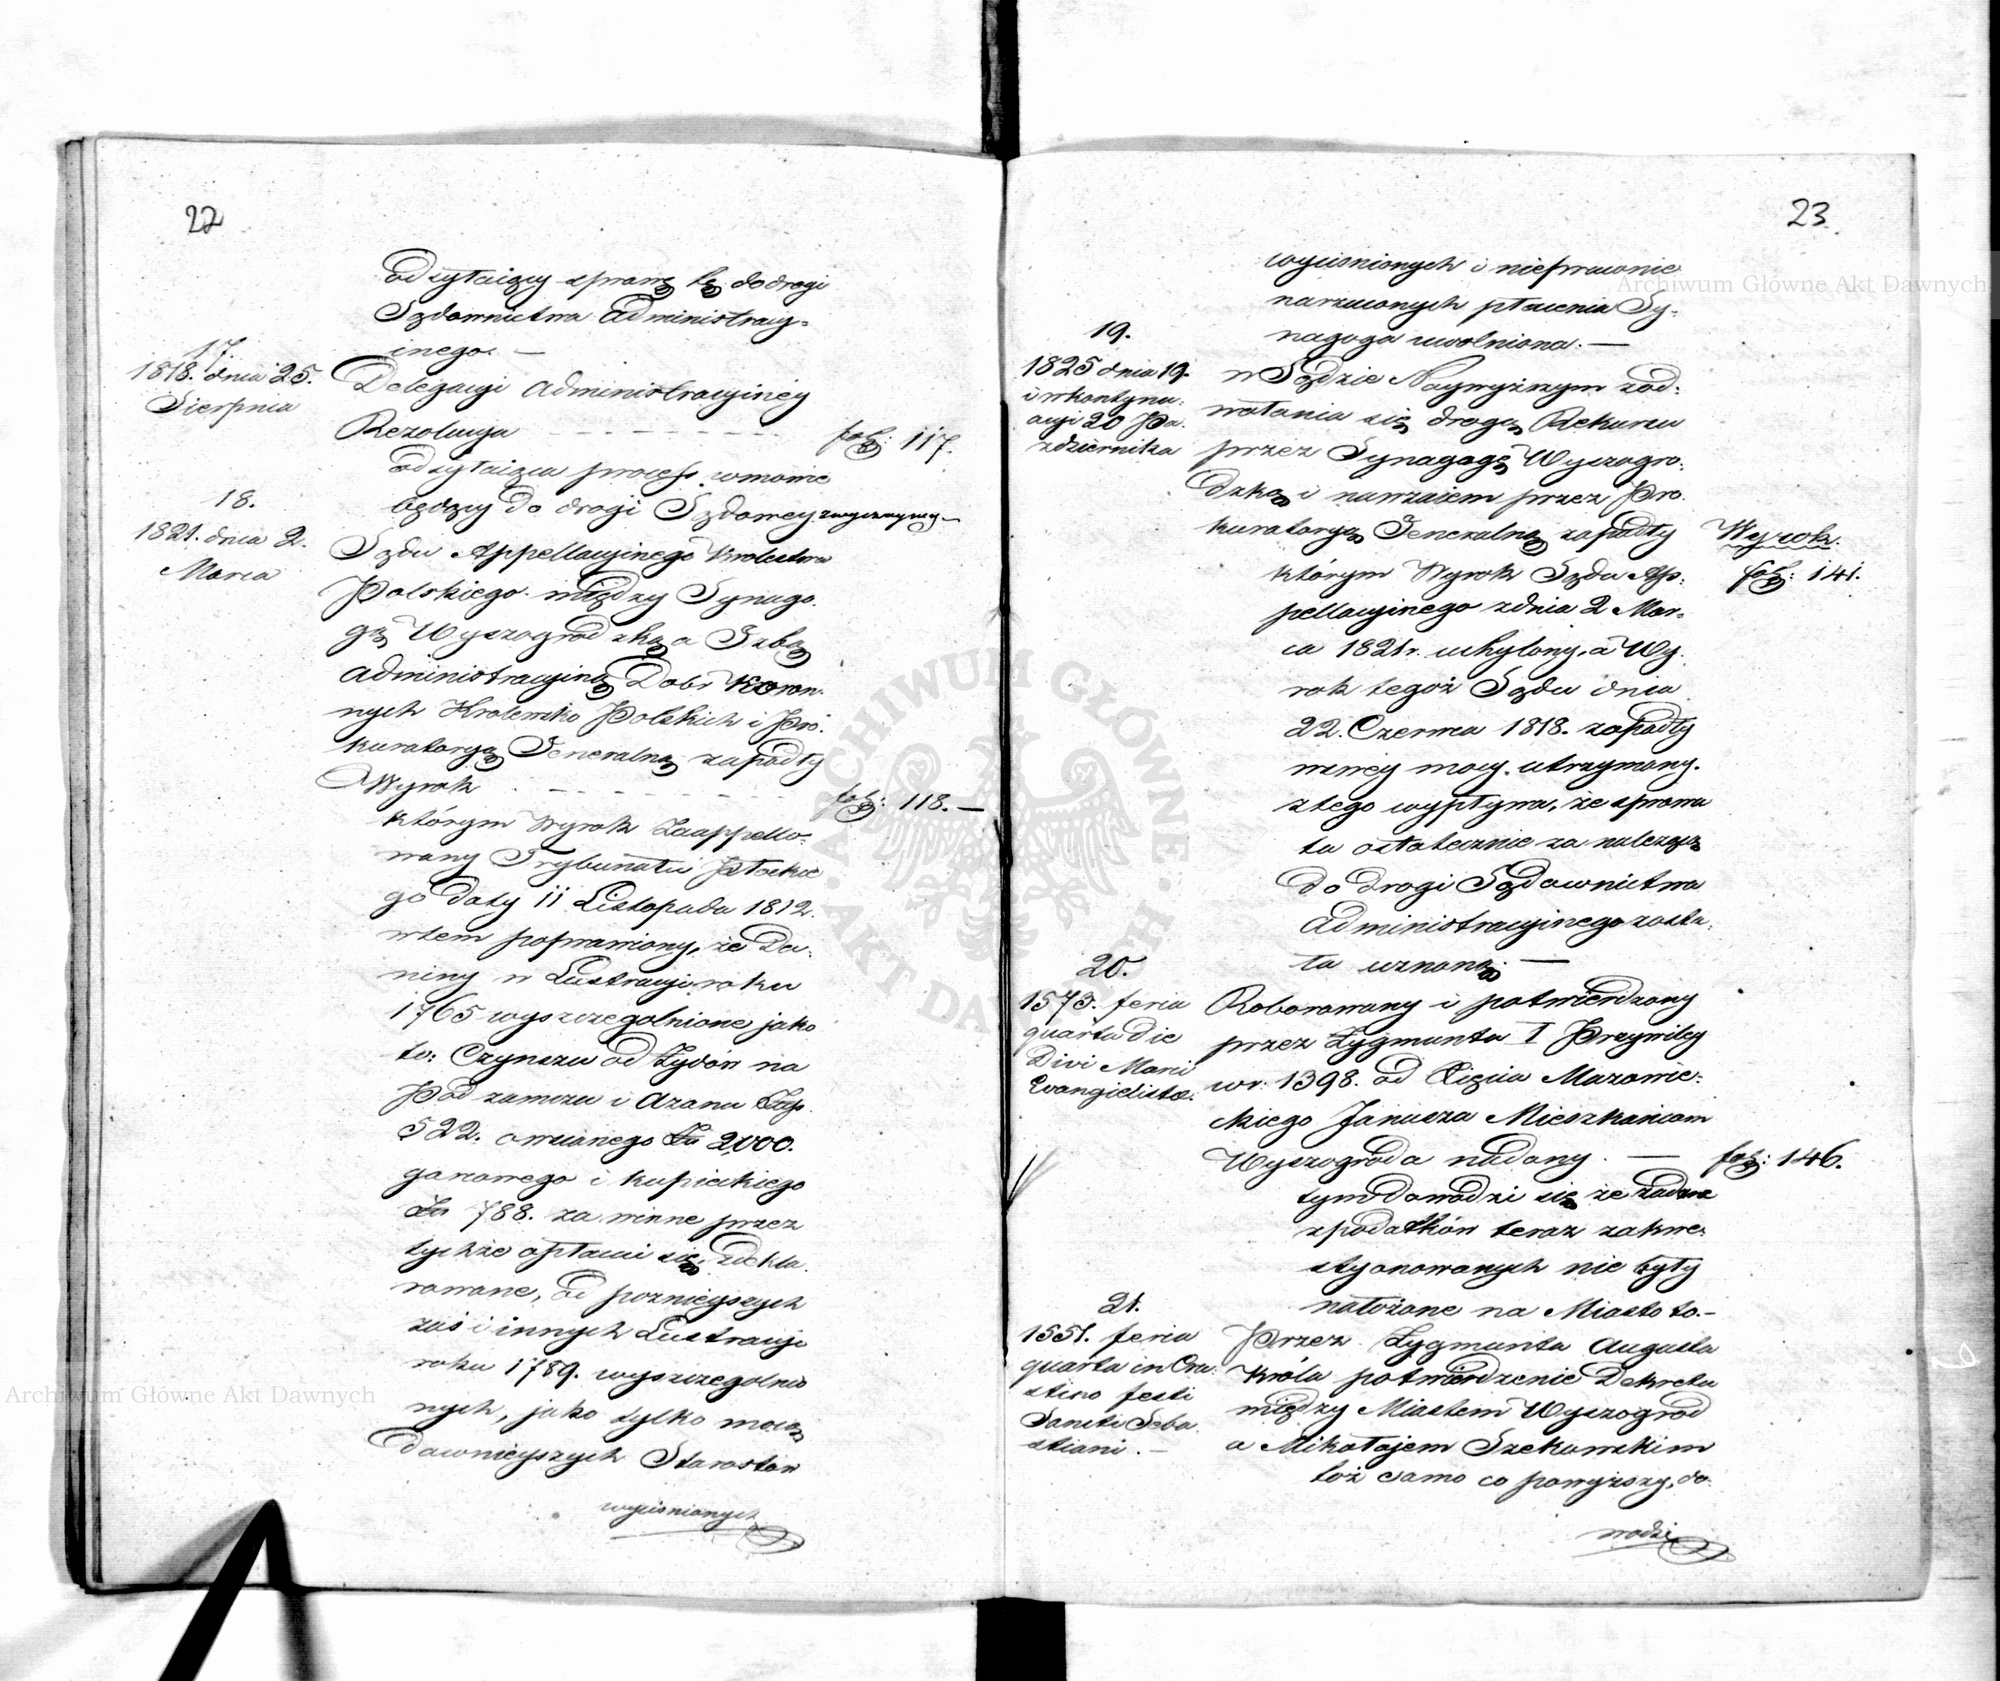 22
odsyłaiący sprawę tę do drogi
Sądownictwa Administracy-
inego. —
17.
1818. dnia 25.
Sierpnia
Delegacyi Administracyinéy
Rezolucya - - - - - - - - fol: 117.
odsyłaiąca process w mowie
będący do drogi Sądowey zwyczayney —
18.
1821. dnia 2.
Marca
Sądu Appellacyinego Krolestwa
Polskiego między Synago-
gą Wyszogrodzką a Izbą
Administracyiną Dobr Koron-
nych Krolewsko Polskich i Pro-
kuratoryą Generalną zapadły
Wyrok - - - - - - - fol: 118. —
którym Wyrok Zaappello-
wany Trybunału Płockie
go daty 11 Listopada 1812.
wtem poprawiony, że Da-
niny w Lustracyi roku
1765 wyszczegolnione jako
to: Czynszu od Żydów na
Pod zamczu i Azanu Złp.
522. owcianego Zł 2000.
garcowego i kupieckiego
Zł 788. za winne przez
tychże opłacai się, zdekla-
rowane, od poznieyszych
zaś i innych Lustracyi
roku 1789. wyszczegolnio
nych, jako tylko mocą
dawnieyszych Starostów
wyciśnionych
23
wyciśnionych i nieprawnie
narzuconych płacenia Sy-
nagoga uwolniona. —
19.
1825 dnia 19.
i w kontynu-
acyi 20 Pa-
ździernika
w Sądzie Naywyższym zod-
wołania się drogą Rekursu
przez Synagogę Wyszogro-
dzką i nawzaiem przez Pro-
kuratoryą Generalną zapadły Wyrok.
którym Wyrok Sądu Ap- fol: 141.
pellacyinego zdnia 2 Mar-
ca 1821 r. uchylony, a Wy-
rok tegoż Sądu dnia
22. Czerwca 1818. zapadły
wswey mocy utrzymany.
ztego wypływa, że sprawa
ta ostatecznie za należącą
do drogi Sądownictwa
Administracyinego zosta-
ła uznaną. —
20.
1573. feria
quarta die
Divi Marci
Evangelistæ.
Roborowany i potwierdzony
przez Zygmunta I Przywiley
w r: 1398. od Xięcia Mazowie-
ckiego Janusza Mieszkańcom
Wyszogroda nadany. — fol: 146.
tym dowodzi się że żadne
zpodatków teraz zakwe-
styonowanych nie były
nałożone na Miasto to. —
21.
1551. feria
quarta in Cra-
stino festi
Sancti Seba-
stiani. —
Przez Zygmunta Augusta
Króla potwierdzenie Dekretu
między Miastem Wyszogrod
a Mikołajem Szekowskim
toż samo co powyższy, do-
wodzi
Archiwum Główne Akt Dawnych
Archiwum Główne Akt Dawnych
ARCHIWUM GŁÓWNE
AKT DAWNYCH